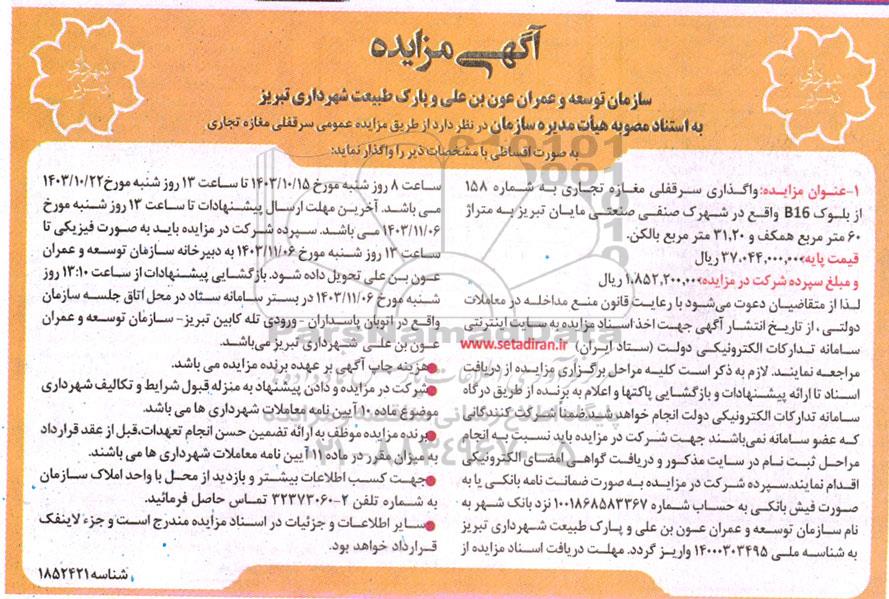 آگهی مزایده
شهرداری تبریز
شهرداری تبریز
سازمان توسعه و عمران عون بن علی و پارک طبیعت شهرداری تبریز
به استناد مصوبه هیأت مدیره سازمان در نظر دارد از طریق مزایده عمومی سرقفلی مغازه تجاری
به صورت اقساطی با مشخصات ذیر را واگذار نماید:
۱-عنوان مزایده:واگذاری سرقفلی مغازه تجاری به شماره ۱۵۸
از بلوک B16 واقع در شهرک صنفی صنعتی مایان تبریز به متراژ
۶۰ متر مربع همکف و ۳۱,۲۰ متر مربع بالکن.
قیمت پایه:۳۷,۰۴۴,۰۰۰,۰۰۰ ریال
و مبلغ سپرده شرکت در مزایده:۱,۸۵۲,۲۰۰,۰۰۰ ریال
لذا از متقاضیان دعوت می‌شود با رعایت قانون منع مداخله در معاملات
دولتی ، از تاریخ انتشار آگهی جهت اخذ اسناد مزایده به سایت اینترنتی
سامانه تدارکات الکترونیکی دولت (ستاد ایران) www.setadiran.ir
مراجعه نمایند. لازم به ذکر است کلیه مراحل برگزاری مزایده از دریافت
اسناد تا ارائه پیشنهادات و بازگشایی پاکتها و اعلام به برنده از طریق درگاه
سامانه تدارکات الکترونیکی دولت انجام خواهد شد.ضمنا شرکت کنندگانی
که عضو سامانه نمی‌باشند جهت شرکت در مزایده باید نسبت به انجام
مراحل ثبت نام در سایت مذکور و دریافت گواهی امضای الکترونیکی
اقدام نمایند.سپرده شرکت در مزایده به صورت ضمانت نامه بانکی یا به
صورت فیش بانکی به حساب شماره ۱۰۰۱۸۶۸۵۸۳۳۶۷ نزد بانک شهر به
نام سازمان توسعه و عمران عون بن علی و پارک طبیعت شهرداری تبریز
به شناسه ملی ۱۴۰۰۰۳۰۳۴۹۵ واریز گردد. مهلت دریافت اسناد مزایده از
ساعت ۸ روز شنبه مورخ ۱۴۰۳/۱۰/۱۵ تا ساعت ۱۳ روز شنبه مورخ۱۴۰۳/۱۰/۲۲
می باشد. آخرین مهلت ارسال پیشنهادات تا ساعت ۱۳ روز شنبه مورخ
۱۴۰۳/۱۱/۰۶ می باشد. سپرده شرکت در مزایده باید به صورت فیزیکی تا
ساعت ۱۳ روز شنبه مورخ ۱۴۰۳/۱۱/۰۶ به دبیرخانه سازمان توسعه و عمران
عون بن علی تحویل داده شود. بازگشایی پیشنهادات از ساعت ۱۳:۱۰ روز
شنبه مورخ ۱۴۰۳/۱۱/۰۶ در بستر سامانه ستاد در محل اتاق جلسه سازمان
واقع در اتوبان پاسداران - ورودی تله کابین تبریز- سازمان توسعه و عمران
عون بن علی شهرداری تبریز می‌باشد.
●هزینه چاپ آگهی بر عهده برنده مزایده می باشد.
●شرکت در مزایده و دادن پیشنهاد به منزله قبول شرایط و تکالیف شهرداری
موضوع ماده ۱۰ آیین نامه معاملات شهرداری ها می باشد.
●برنده مزایده موظف به ارائه تضمین حسن انجام تعهدات،قبل از عقد قرارداد
به میزان مقرر در ماده ۱۱ آیین نامه معاملات شهرداری ها می باشند.
●جهت کسب اطلاعات بیشتر و بازدید از محل با واحد املاک سازمان
به شماره تلفن ۲-۳۲۳۷۳۰۶۰ تماس حاصل فرمائید.
●سایر اطلاعات و جزئیات در اسناد مزایده مندرج است و جزء لاینفک
قرارداد خواهد بود.
شناسه۱۸۵۲۴۲۱